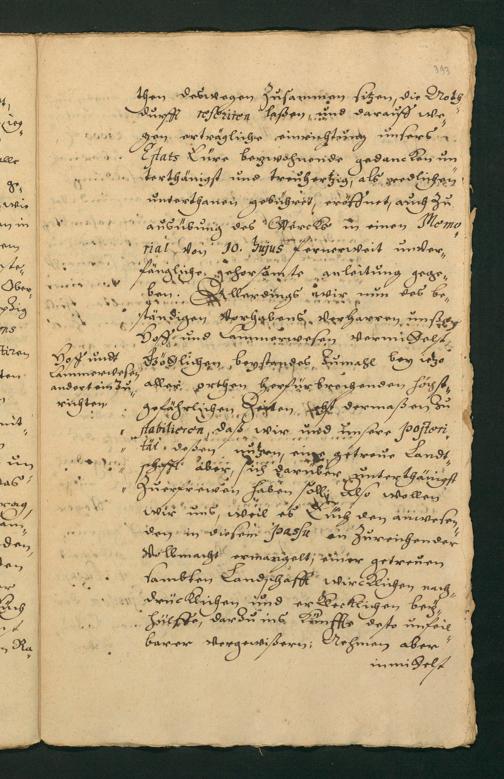 393
then deswegen Zusammen sitzen, die Noth-
durfft referiren lassen, und darauff we-
gen erträgliche einrichtung unsers
Estats Eure beywohnende gedancken un-
terthänigst und treuhertzig, als redlichen
unterthanen gebühret, eröffnet, auch Zu
ausübung des Wercks in einen Memo-
rial von 10. hujus fernerweit unver-
fängliche gehorsamste anleitung gege-
ben: Allerdings wir nun des be-
ständigen Vorhabens verharren, unsser
Hoff und Cammerwesen vermittelst
Göttlichen beystandes, Zumahl bey itzo
aller orthen herfür brechenden höchst-
gefährlichen Zeiten, dermaßen Zu
stabiliren, daß wir und unsere posteri-
tät dessen nutzen, eine getreue Landt-
schafft aber sich darüber unterthänigst
Zuerfrewen haben soll; Also wollen
wir uns, weil es Euch den anwesen-
den in diesem passu an Zureichender
Vollmacht ermangelt, einer getreuen
sambten Landschafft wircklichen nach-
drücklichen und erklecklichen bey-
hülffe, darzu ins künfftig desto unfeil-
barer vergewissern; Nehmen aber
inmittelst
Hoff undt
Cammerwesen
anderst ein Zu-
richten